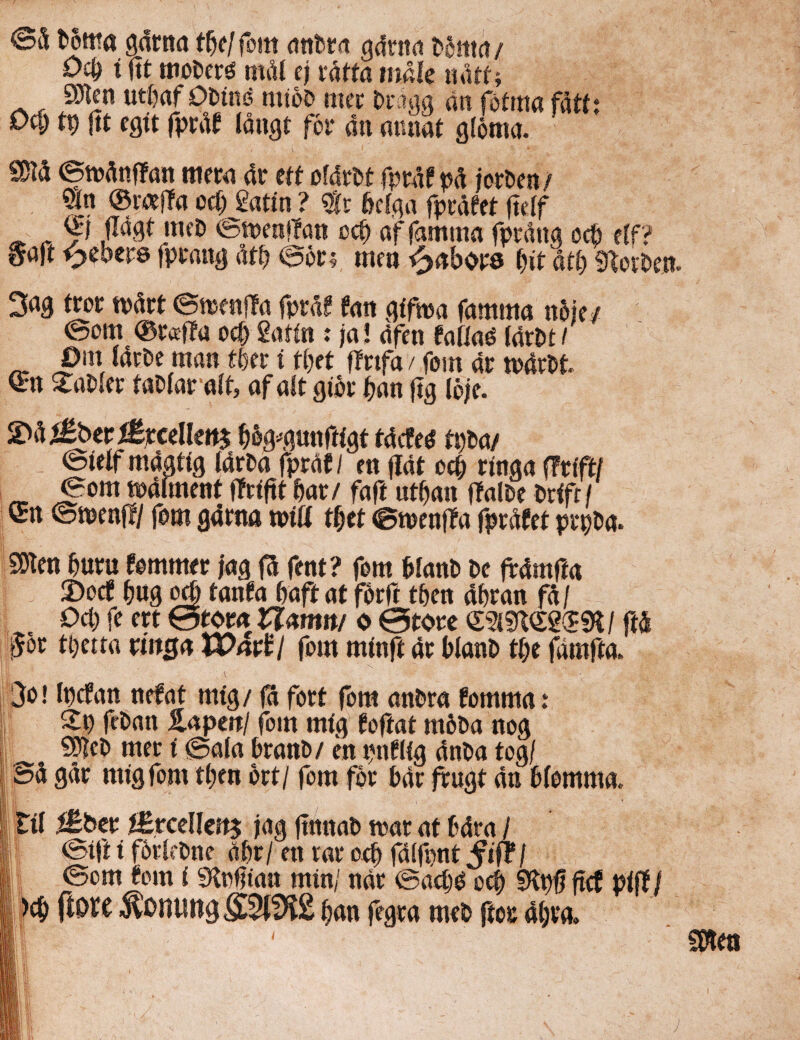 Så döma gärna the/ som andra gärna döma/
Och i sit moders mål ej rätta måle nått;
Men uthaf Odins miöd mer dragg än sötma fått:
Och ty sit egit språk långt för än annat glöma.
Må Swänskan mera är ett olärdt språk på jorden/
Än Græska och Latin? Är helga språket sielf
Ej slägt med Swenskan och af samma språng och elf?
Fast Hebers sprang åth Sör; men Habors hit åth Norden.
Jag tror wårt Swenska språk kan gifwa samma nöje/
Som Græska och Latin: ja! äfen kallas lärdt/
Om lärde man ther i thet skrifa/ som är wärdt.
En Tadler tadlar alt, af alt giör han sig löje.
Då Eder Excellens hög-gunstigt täckes tyda/
Sielf mägtig lärda språk/ en slät och ringa skrift/
Som wälment skrifit har/ fast uthan skalde drift/
En Swensk/ som gärna will thet Swenska språket pryda.
Men huru kommer jag så sent? som bland de främsta
Dock hug och tanka haft at först then ähran få/
Och se ert Stora Namn/ o Store CANCELER/ stå
För thetta ringa Wärk/ som minst är bland the sämsta.
Jo! lyckan nekat mig/ så fort som andra komma:
Ty sedan Lapen/ som mig kostat möda nog
Med mer i Sala brand/ en ynklig ända tog/
Så går mig som then ört/ som för bär frugt än blomma.
Til Eder Excellens jag sinnad war at bära/
Sist i förledne åhr/ en rar och sälsynt Fisk/
Som kom i Ryssian min/ när Sachs och Ryß fick pisk/
och store Konung CARL han segra med stor ähra.
Men